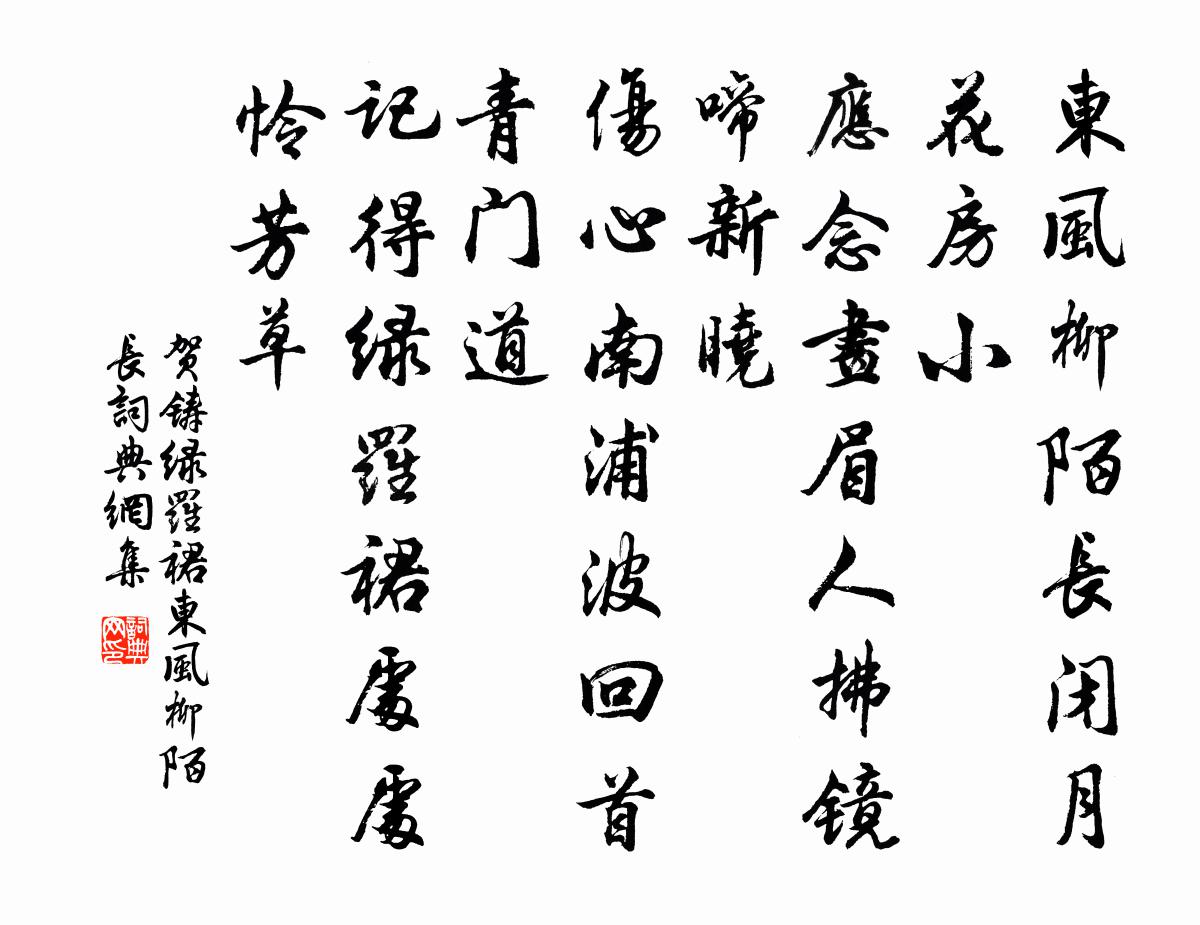 東風柳陌長闭月
花房小
應念畫眉人拂镜
啼新曉
傷心南浦波回首
青门道
記得绿羅裙處處
怜芳草
贺鑄绿羅裙東風柳陌
長詞典網集
詞典
网印